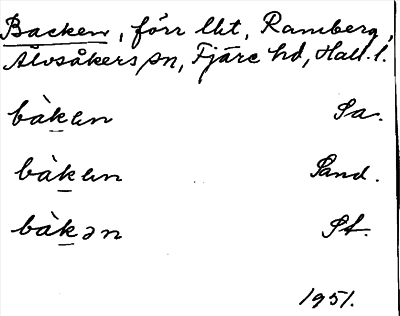 Backen, förr lht, Ramberg,
Älvsåkers sn, Fjäre hd, Hall. l.
bàken Sa.
bàken Sand.
bàkən St.
1951.